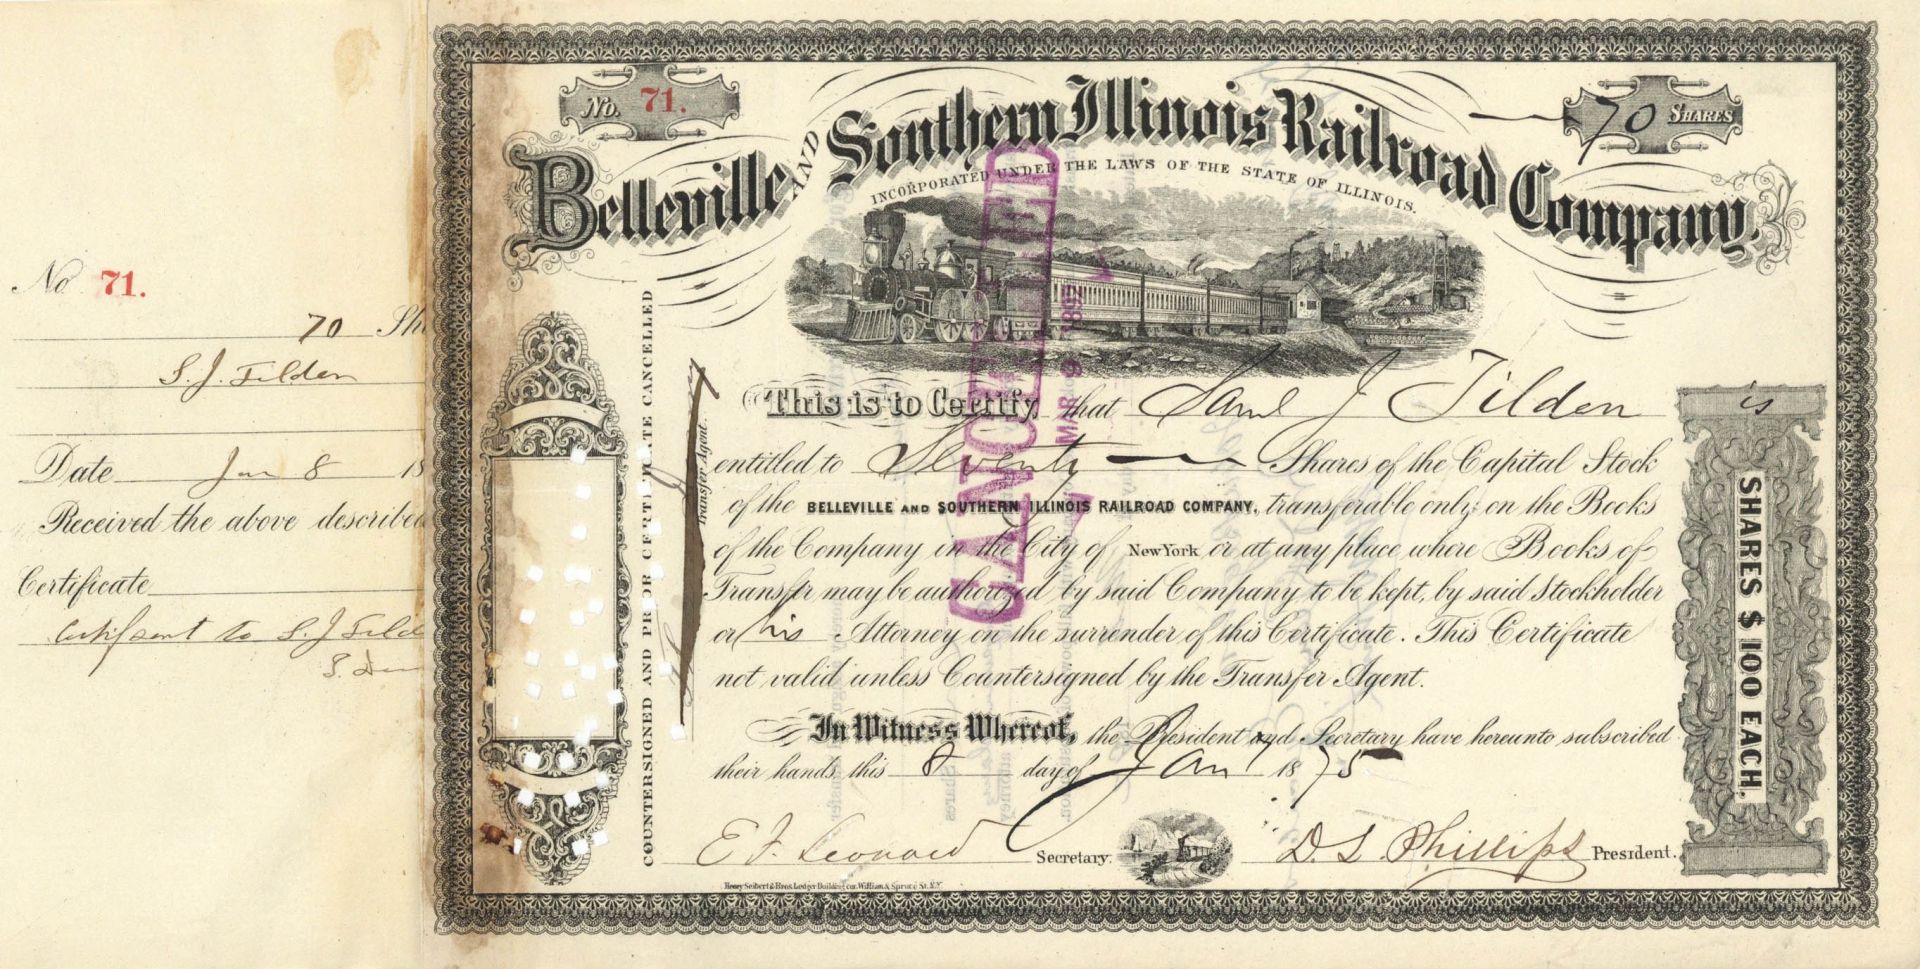 No. 71.
70 SHARES
Belleville AND Southern Illinois Railroad Company.
INCORPORATED UNDER THE LAWS OF THE STATE OF ILLINOIS.
No 71.
70 Sh
S. J. Tilden
Date Jan 8 18
Received the above described
Certificate
Certif sent to S. J Tild
COUNTERSIGNED AND PRIOR CERTIFICATE CANCELLED
Transfer Agent.
CANCELLED
MAR 9 1892
This is to Certify, that Saml J Tilden is
entitled to Seventy Shares of the Capital Stock
of the BELLEVILLE AND SOUTHERN ILLINOIS RAILROAD COMPANY, transferable only on the Books
of the Company in the City of New York or at any place where Books of
Transfer may be authorized by said Company to be kept, by said Stockholder
or his Attorney on the surrender of this Certificate. This Certificate
not valid unless Countersigned by the Transfer Agent.
In Witness Whereof, the President and Secretary have hereunto subscribed
their hands this 8 day of Jany 1875
SHARES $100 EACH.
E F. Leonard Secretary.
D. L. Phillips President.
Henry Seibert & Bros. Ledger Building cor. William & Spruce St. N.Y.